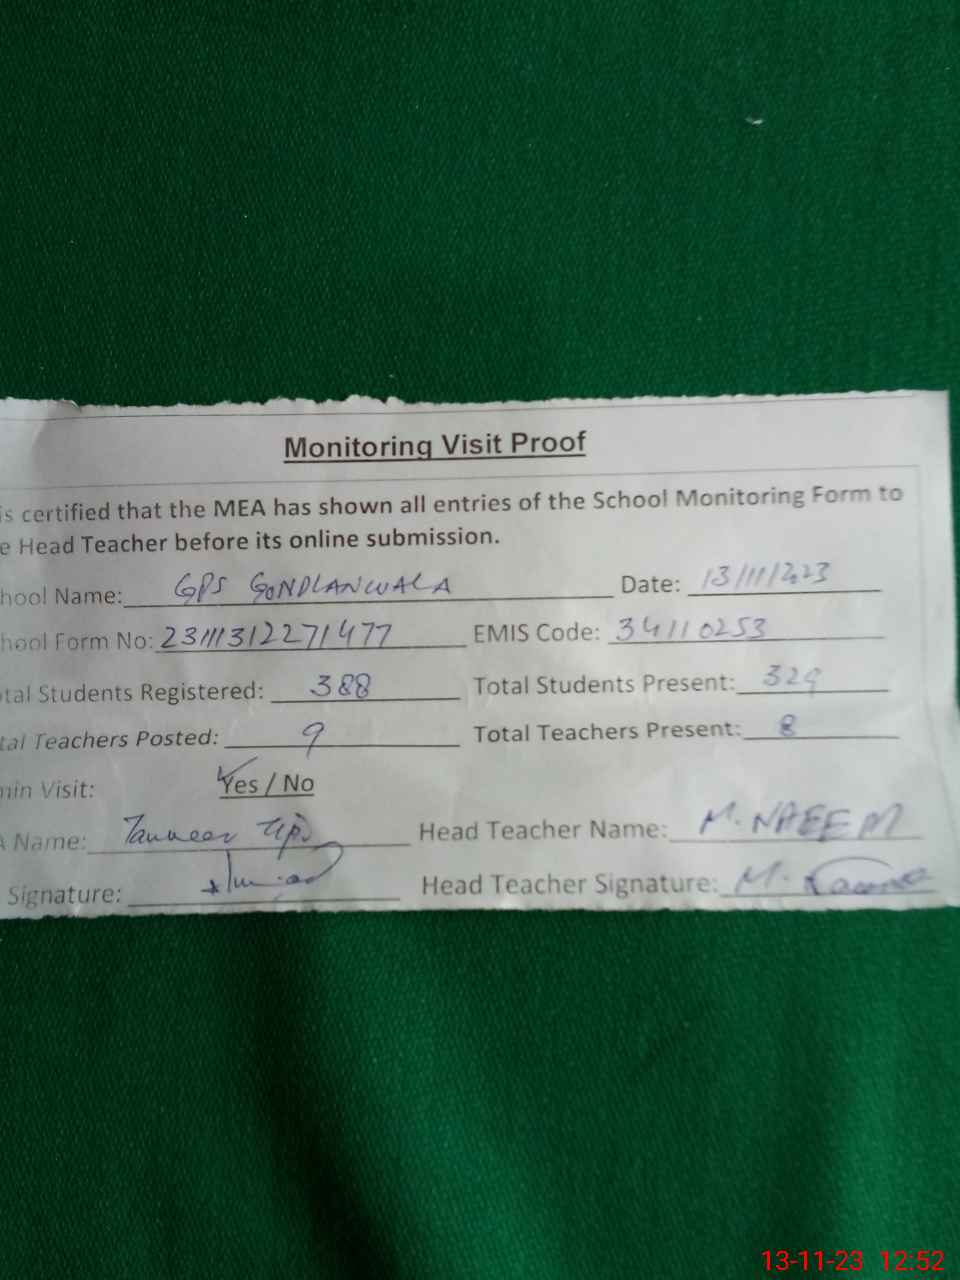 Monitoring Visit Proof
is certified that the MEA has shown all entries of the School Monitoring Form to
e Head Teacher before its online submission.
hool Name: GPS GONDLANWALA Date: 13/11/2023
hool Form No: 23111312271477 EMIS Code: 34110253
tal Students Registered: 388 Total Students Present: 329
tal Teachers Posted: 9 Total Teachers Present: 8
min Visit: Yes / No
A Name: Head Teacher Name: M. NAEEM
Signature: Head Teacher Signature: M.
13-11-23 12:52